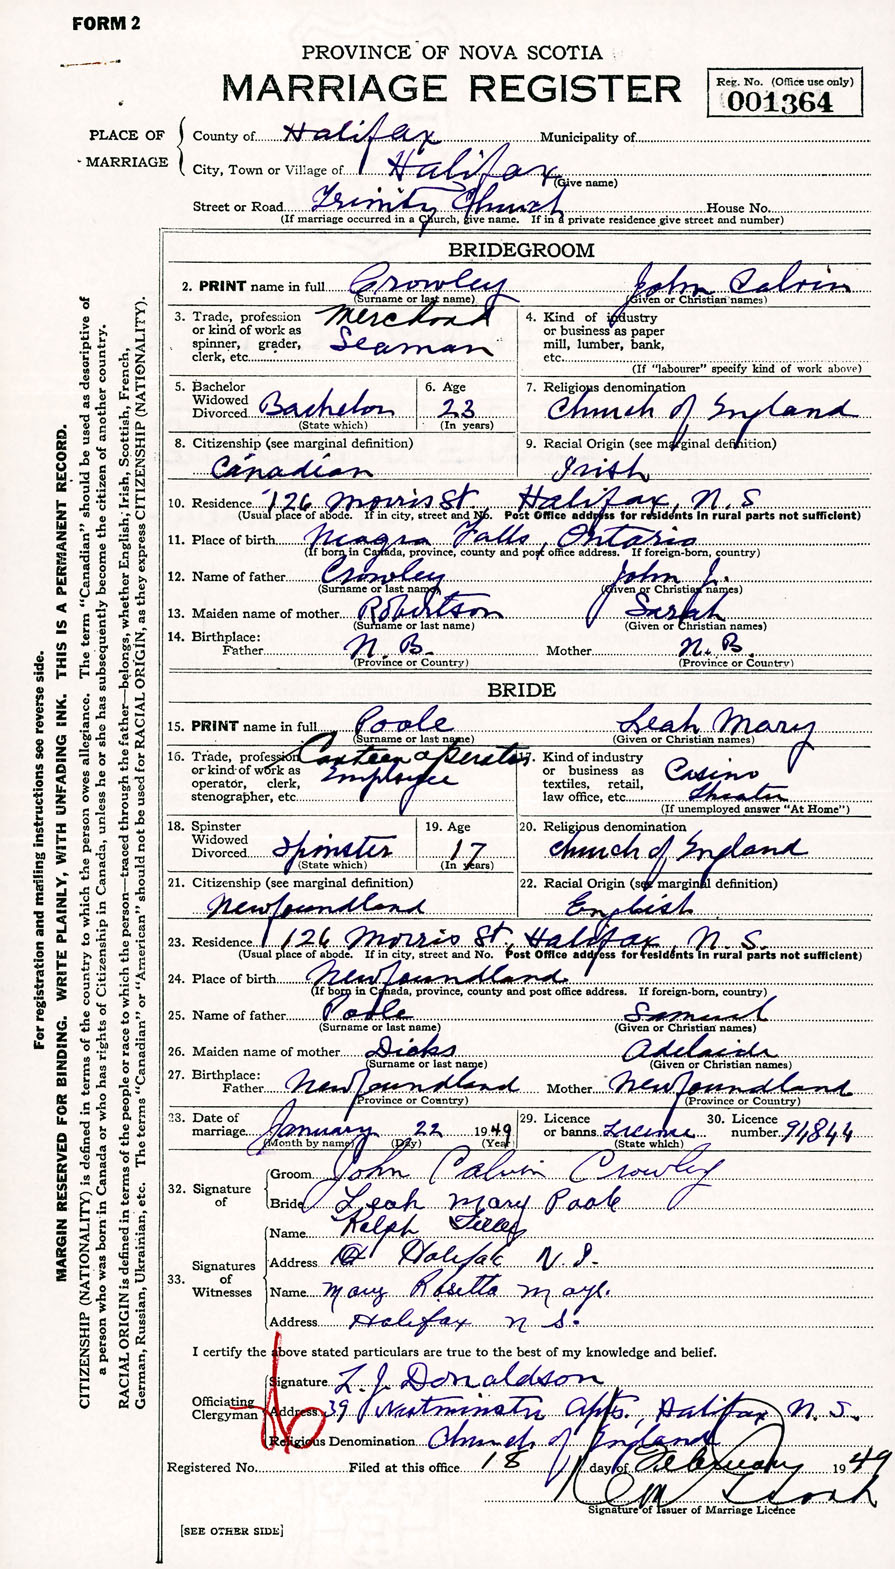 FORM 2
PROVINCE OF NOVA SCOTIA
MARRIAGE REGISTER
Reg. No. (Office use only)
001364
PLACE OF MARRIAGE
County of Halifax Municipality of
City, Town or Village of Halifax
(Give name)
Street or Road Trinity Church House No.
(If marriage occurred in a Church, give name. If in a private residence give street and number)
BRIDEGROOM
2. PRINT name in full Crowley John Calvin
(Surname or last name) (Given or Christian names)
3. Trade, profession or kind of work as spinner, grader, clerk, etc. Merchand Seaman
4. Kind of industry or business as paper mill, lumber, bank, etc.
(If "labourer" specify kind of work above)
5. Bachelor Widowed Divorced Bachelor
(State which)
6. Age 23
(In years)
7. Religious denomination
Church of England
8. Citizenship (see marginal definition)
Canadian
9. Racial Origin (see marginal definition)
Irish
10. Residence 126 Morris St. Halifax, N.S
(Usual place of abode. If in city, street and No. Post Office address for residents in rural parts not sufficient)
11. Place of birth Niagra Falls, Ontario
(If born in Canada, province, county and post office address. If foreign-born, country)
12. Name of father Crowley John J.
(Surname or last name) (Given or Christian names)
13. Maiden name of mother Robertson Sarah
(Surname or last name) (Given or Christian names)
14. Birthplace:
Father N. B. Mother N. B.
(Province or Country) (Province or Country)
BRIDE
15. PRINT name in full Poole Leah Mary
(Surname or last name) (Given or Christian names)
16. Trade, profession or kind of work as operator, clerk, stenographer, etc. Canteen operator Employee
17. Kind of industry or business as textiles, retail, law office, etc. Casino Theater
(If unemployed answer "At Home")
18. Spinster Widowed Divorced Spinster
(State which)
19. Age 17
(In years)
20. Religious denomination
Church of England
21. Citizenship (see marginal definition)
Newfoundland
22. Racial Origin (see marginal definition)
English
23. Residence 126 Morris St., Halifax, N.S.
(Usual place of abode. If in city, street and No. Post Office address for residents in rural parts not sufficient)
24. Place of birth Newfoundland
(If born in Canada, province, county and post office address. If foreign-born, country)
25. Name of father Poole Samuel
(Surname or last name) (Given or Christian names)
26. Maiden name of mother Dicks Adelaide
(Surname or last name) (Given or Christian names)
27. Birthplace:
Father Newfoundland Mother Newfoundland
(Province or Country) (Province or Country)
28. Date of marriage January 22 1949
(Month by name) (Day) (Year)
29. Licence or banns License
(State which)
30. Licence number 94844
32. Signature of
Groom John Calvin Crowley
Bride Leah Mary Poole
33. Signatures of Witnesses
Name Ralph
Address Halifax N.S.
Name Mary Rosetta Maye.
Address Halifax N S.
I certify the above stated particulars are true to the best of my knowledge and belief.
Officiating Clergyman
Signature L. J. Donaldson
Address 39 Westminster Apts., Halifax N. S.
Religious Denomination Church of England
Registered No. Filed at this office 18 day of February 1949
Signature of Issuer of Marriage Licence
[SEE OTHER SIDE]
For registration and mailing instructions see reverse side.
MARGIN RESERVED FOR BINDING. WRITE PLAINLY, WITH UNFADING INK. THIS IS A PERMANENT RECORD.
CITIZENSHIP (NATIONALITY) is defined in terms of the country to which the person owes allegiance. The term "Canadian" should be used as descriptive of
a person who was born in Canada or who has rights of Citizenship in Canada, unless he or she has subsequently become the citizen of another country.
RACIAL ORIGIN is defined in terms of the people or race to which the person—traced through the father—belongs, whether English, Irish, Scottish, French,
German, Russian, Ukrainian, etc. The terms "Canadian" or "American" should not be used for RACIAL ORIGIN, as they express CITIZENSHIP (NATIONALITY).